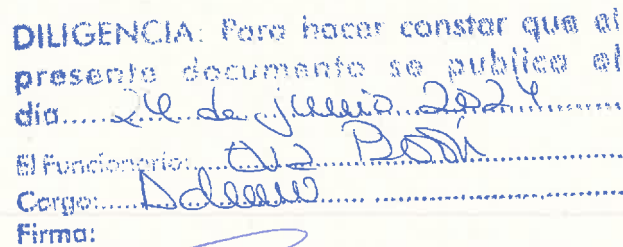 DILIGENCIA: Para hacer constar que el
presente documento se publica el
día......24 de junio 2024............
El Funcionario:
Cargo:
Firma: